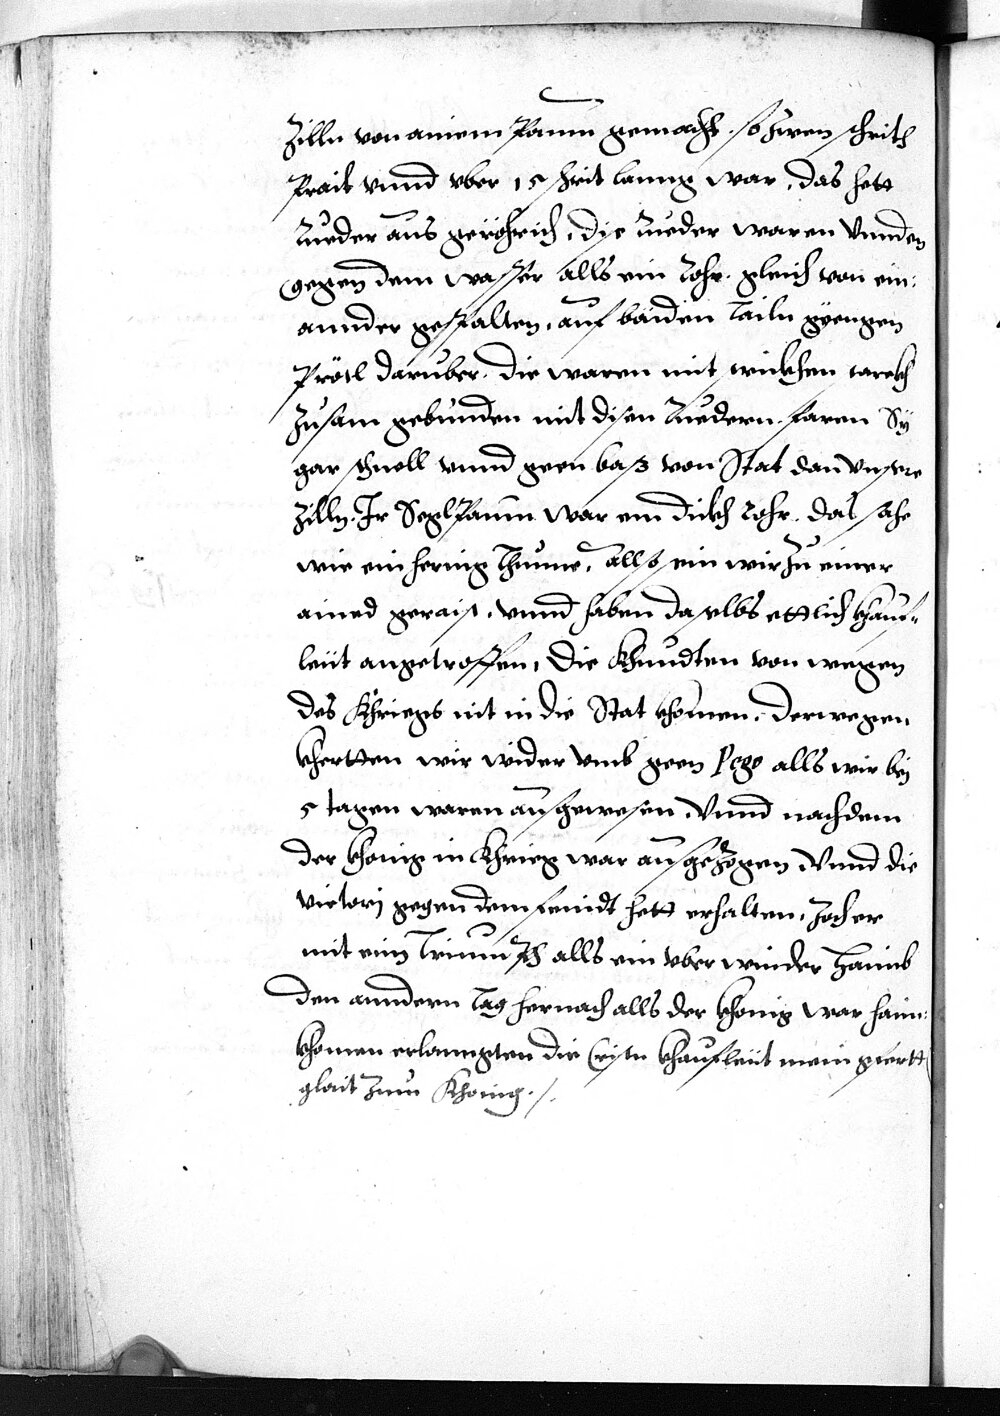 Zilln von ainem Paum gemacht. so zwen schrith
Prait vnnd vber 15 schrit lanng war, das hett
Rueder aus geröhrich, die Rueder waren vnnden
gegen dem wasser alls ein Rohr. gleich von ein:
annder gespalten, auf baiden Tailn giengen
Prötl daruber. die waren mit
Zusam gebunden mit disen Ruedern. faren Sÿ
gar schnell vnnd geen bas von Stat dan vnsere
Zilln. Ir SeglPaum war ein dickh Rohr. das sahe
wie ein hering Thunne, allso sein wir zu einer
ained geraist, vnnd haben daselbs ettlich khauf-
leüt angetroffen, die khundten von wegen
des Khriegs nit in die Stat khomen. derwegen
khertten wir wider vmb geen Pego alls wir bej
5 tagen waren ausgewesen. Vnnd nachdem
der khonig in Khrieg war ausgezogen Vnnd die
victorj gegen dem feindt hett erhalten, Zoch er
mit eim Triumph alls ein vberwinder haimb
den anndern Tag hernach alls der khonig war haim:
khomen erlanngten die khaufleüt mein gfertt
glait zum Khonig ./.